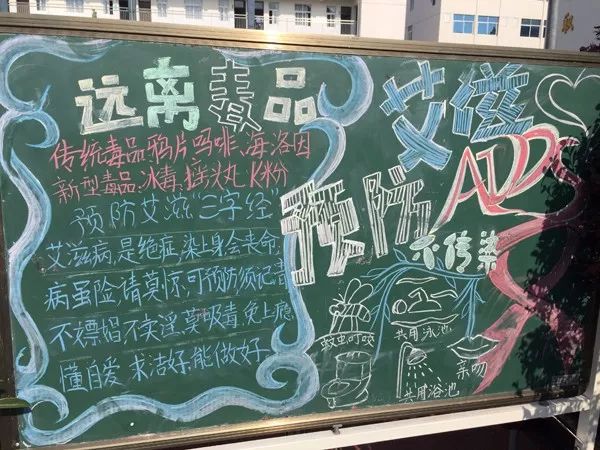 远离毒品
传统毒品,鸦片,吗啡,海洛因
新型毒品,冰毒,摇头丸,K粉
预防艾滋“三字经”
艾滋病,是绝症,染上身会丧命,
病虽险,请莫惊,可预防须记着
不嫖娼不卖淫,莫吸毒,免上瘾
懂自爱 求洁好,能做好
艾滋
预防
AIDS
不传染
蚊虫叮咬
共用泳池
共用浴池
亲吻